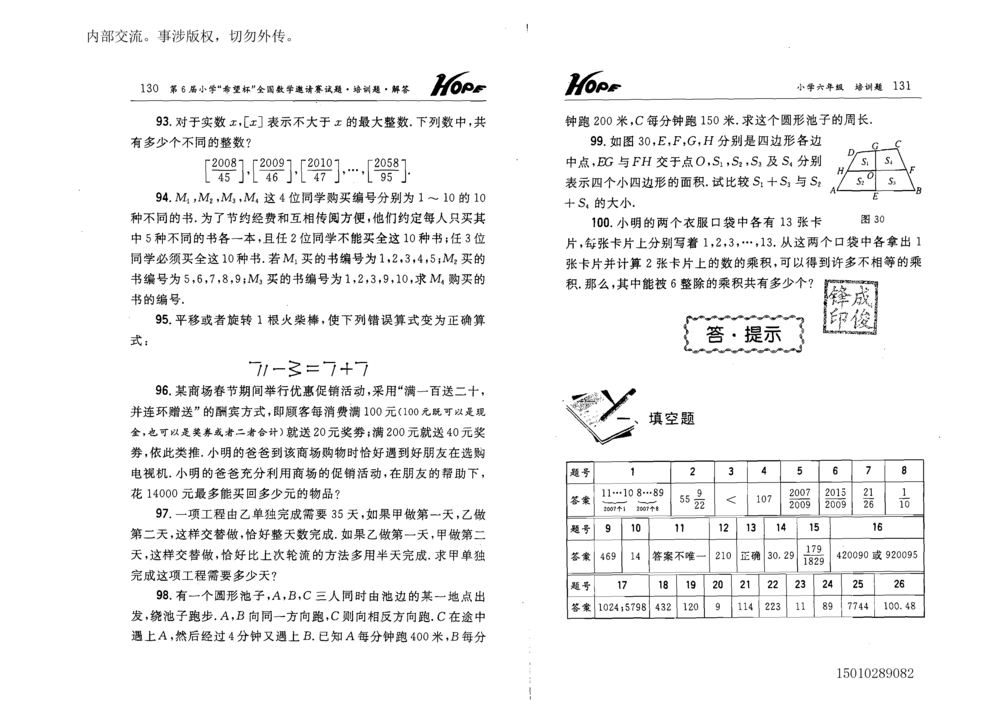 内部交流。事涉版权，切勿外传。
130 第6届小学“希望杯”全国数学邀请赛试题·培训题·解答 HOPE
93. 对于实数 x,[x] 表示不大于 x 的最大整数. 下列数中,共
有多少个不同的整数?
[2008/45],[2009/46],[2010/47],…,[2058/95].
94. M₁,M₂,M₃,M₄ 这 4 位同学购买编号分别为 1 ~ 10 的 10
种不同的书. 为了节约经费和互相传阅方便,他们约定每人只买其
中 5 种不同的书各一本,且任 2 位同学不能买全这 10 种书;任 3 位
同学必须买全这 10 种书. 若 M₁ 买的书编号为 1,2,3,4,5;M₂ 买的
书编号为 5,6,7,8,9;M₃ 买的书编号为 1,2,3,9,10,求 M₄ 购买的
书的编号.
95. 平移或者旋转 1 根火柴棒,使下列错误算式变为正确算
式:
96. 某商场春节期间举行优惠促销活动,采用“满一百送二十,
并连环赠送”的酬宾方式,即顾客每消费满 100 元(100 元既可以是现
金,也可以是奖券或者二者合计)就送 20 元奖券;满 200 元就送 40 元奖
券,依此类推. 小明的爸爸到该商场购物时恰好遇到好朋友在选购
电视机. 小明的爸爸充分利用商场的促销活动,在朋友的帮助下,
花 14000 元最多能买回多少元的物品?
97. 一项工程由乙单独完成需要 35 天,如果甲做第一天,乙做
第二天,这样交替做,恰好整天数完成. 如果乙做第一天,甲做第二
天,这样交替做,恰好比上次轮流的方法多用半天完成. 求甲单独
完成这项工程需要多少天?
98. 有一个圆形池子,A,B,C 三人同时由池边的某一地点出
发,绕池子跑步. A,B 向同一方向跑,C 则向相反方向跑. C 在途中
遇上 A,然后经过 4 分钟又遇上 B. 已知 A 每分钟跑 400 米,B 每分
HOPE 小学六年级 培训题 131
钟跑 200 米,C 每分钟跑 150 米. 求这个圆形池子的周长.
99. 如图 30,E,F,G,H 分别是四边形各边
中点,EG 与 FH 交于点 O,S₁,S₂,S₃ 及 S₄ 分别
表示四个小四边形的面积. 试比较 S₁ + S₃ 与 S₂
+ S₄ 的大小.
D G C
S₁ S₄
H O F
S₂ S₃
A E B
图 30
100. 小明的两个衣服口袋中各有 13 张卡
片,每张卡片上分别写着 1,2,3,…,13. 从这两个口袋中各拿出 1
张卡片并计算 2 张卡片上的数的乘积,可以得到许多不相等的乘
积. 那么,其中能被 6 整除的乘积共有多少个?
锋成
印俊
答·提示
一、填空题
题号 1 2 3 4 5 6 7 8
答案 11…10 8…89 2007个1 2007个8 55 9/22 < 107 2007/2009 2015/2009 21/26 1/10
题号 9 10 11 12 13 14 15 16
答案 469 14 答案不唯一 210 正确 30.29 179/1829 420090 或 920095
题号 17 18 19 20 21 22 23 24 25 26
答案 1024;5798 432 120 9 114 223 11 89 7744 100.48
15010289082